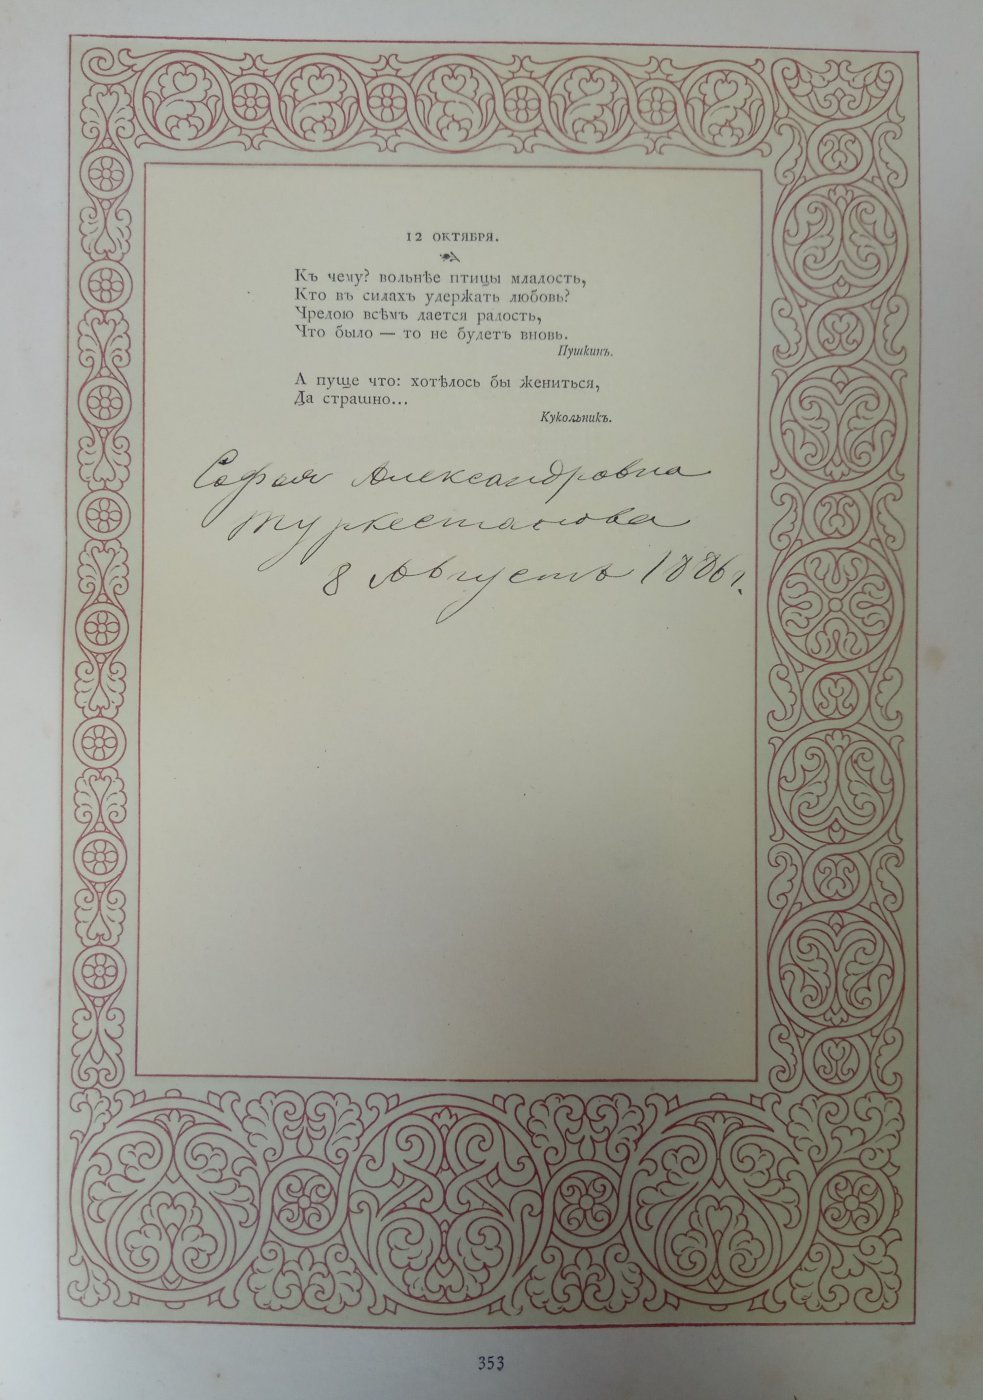 12 ОКТЯБРЯ.
Къ чему? вольнѣе птицы младость,
Кто въ силахъ удержать любовь?
Чредою всѣмъ дается радость,
Что было — то не будетъ вновь.
Пушкинъ.
А пуще что: хотѣлось бы жениться,
Да страшно...
Кукольникъ.
Софья Александровна
Туркестанова
8 Августъ 1886 г.
353